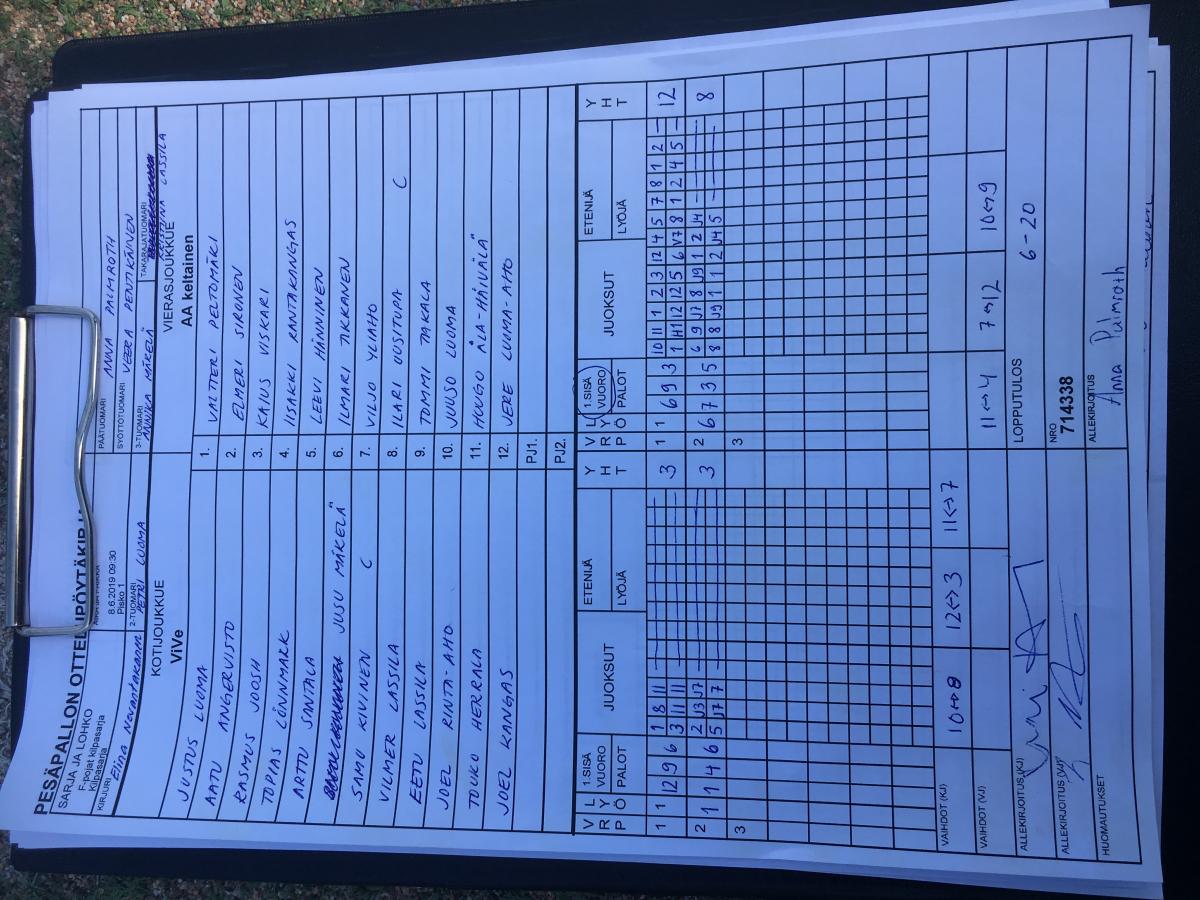 PESÄPALLON OTTELUPÖYTÄKIRJA
SARJA JA LOHKO
F-pojat kilpasarja
Kilpasarja
8.6.2019 09:30
Pisko 1
PÄÄTUOMARI
ANNA PALMROTH
KIRJURI
Elina
SYÖTTÖTUOMARI
VEERA PENTIKÄINEN
2-TUOMARI
PETRI LUOMA
3-TUOMARI
ANNIKA MÄKELÄ
TAKARAJATUOMARI
KRISTIINA LASSILA
KOTIJOUKKUE
ViVe
VIERASJOUKKUE
AA keltainen
JUSTUS LUOMA 1. VALTTERI PELTOMÄKI
AATU ANGERVISTO 2. ELMERI SIRONEN
RASMUS JOOSH 3. KAIUS VISKARI
TOPIAS LÖNNMARK 4. IISAKKI RANTAKANGAS
ARTTU SANTALA 5. LEEVI HÄNNINEN
JUSU MÄKELÄ 6. ILMARI TIKKANEN
SAMU KIVINEN C 7. VILJO YLIAHO
VILMER LASSILA 8. ILARI UUSITUPA C
EETU LASSILA 9. TOMMI TAKALA
JOEL RINTA-AHO 10. JUUSO LUOMA
TOUKO HERRALA 11. HUUGO ALA-HÄIVÄLÄ
JOEL KANGAS 12. JERE LUOMA-AHO
PJ1.
PJ2.
V R P L Y Ö 1.SISÄ VUORO PALOT JUOKSUT ETENIJÄ LYÖJÄ Y H T V R P L Y Ö 1.SISÄ VUORO PALOT JUOKSUT ETENIJÄ LYÖJÄ Y H T
1 8 11 10 11 1 2 3 12 4 5 7 8 1 2
1 1 12 9 6 3 11 11 3 1 1 6 9 3 1 H1 12 12 5 6 V7 8 1 2 4 5 12
2 J3 J7 6 9 J7 8 J9 1 2 J4
2 1 1 4 6 5 J7 7 3 2 6 7 3 5 8 8 J9 1 1 2 J4 5 8
3 3
VAIHDOT (KJ) 10↔8 12↔3 11↔7
VAIHDOT (VJ) 11↔4 7↔12 10↔9
ALLEKIRJOITUS (KJ)
LOPPUTULOS
6-20
ALLEKIRJOITUS (VJ)
NRO
714338
HUOMAUTUKSET
ALLEKIRJOITUS
Anna Palmroth